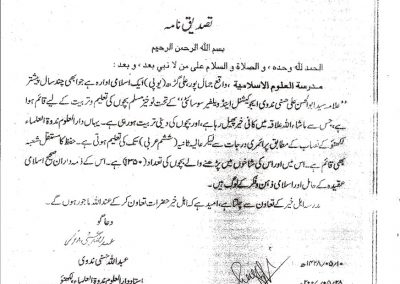 تصدیق نامہ
بسم الله الرحمن الرحيم
الحمد لله وحده، و الصلاة و السلام على من لا نبي بعد، و بعد:
مدرسة العلوم الاسلامية، واقع جمال پور، علی گڑھ (یو پی) ایک اسلامی ادارہ ہے، جو ابھی چند سال پیشتر
"علامہ سید ابوالحسن علی ندوی ایجوکیشنل اینڈ ویلفیر سوسائٹی" کے تحت نوخیز مسلم بچوں کی تعلیم و تربیت کے لیے قائم ہوا
ہے، جس سے ماشاء اللہ علاقہ میں کافی خیر پھیل رہا ہے، اور بچوں کی دینی تربیت ہو رہی ہے۔ یہاں دار العلوم ندوۃ العلماء
لکھنؤ کے نصاب کے مطابق پرائمری درجات سے لیکر عالیہ ثانیہ (ششم عربی) تک کی تعلیم ہوتی ہے۔ حفظ کا مستقل شعبہ
بھی قائم ہے۔ اس میں اور اس کی شاخوں میں پڑھنے والے بچوں کی تعداد (۱۳۵۰) ہے۔ اس کے ذمہ داران صحیح اسلامی
عقیدہ کے حامل اور اسلامی ذہن و فکر کے لوگ ہیں۔
مدرسہ اہل خیر کے تعاون سے چلتا ہے، امید ہے کہ اہل خیر حضرات تعاون کر کے عند اللہ ماجور ہوں گے۔
دعا گو
عبداللہ حسنی ندوی
استاد دار العلوم ندوۃ العلماء لکھنؤ
۱۴۲۸/۰۵/۱۰ھ